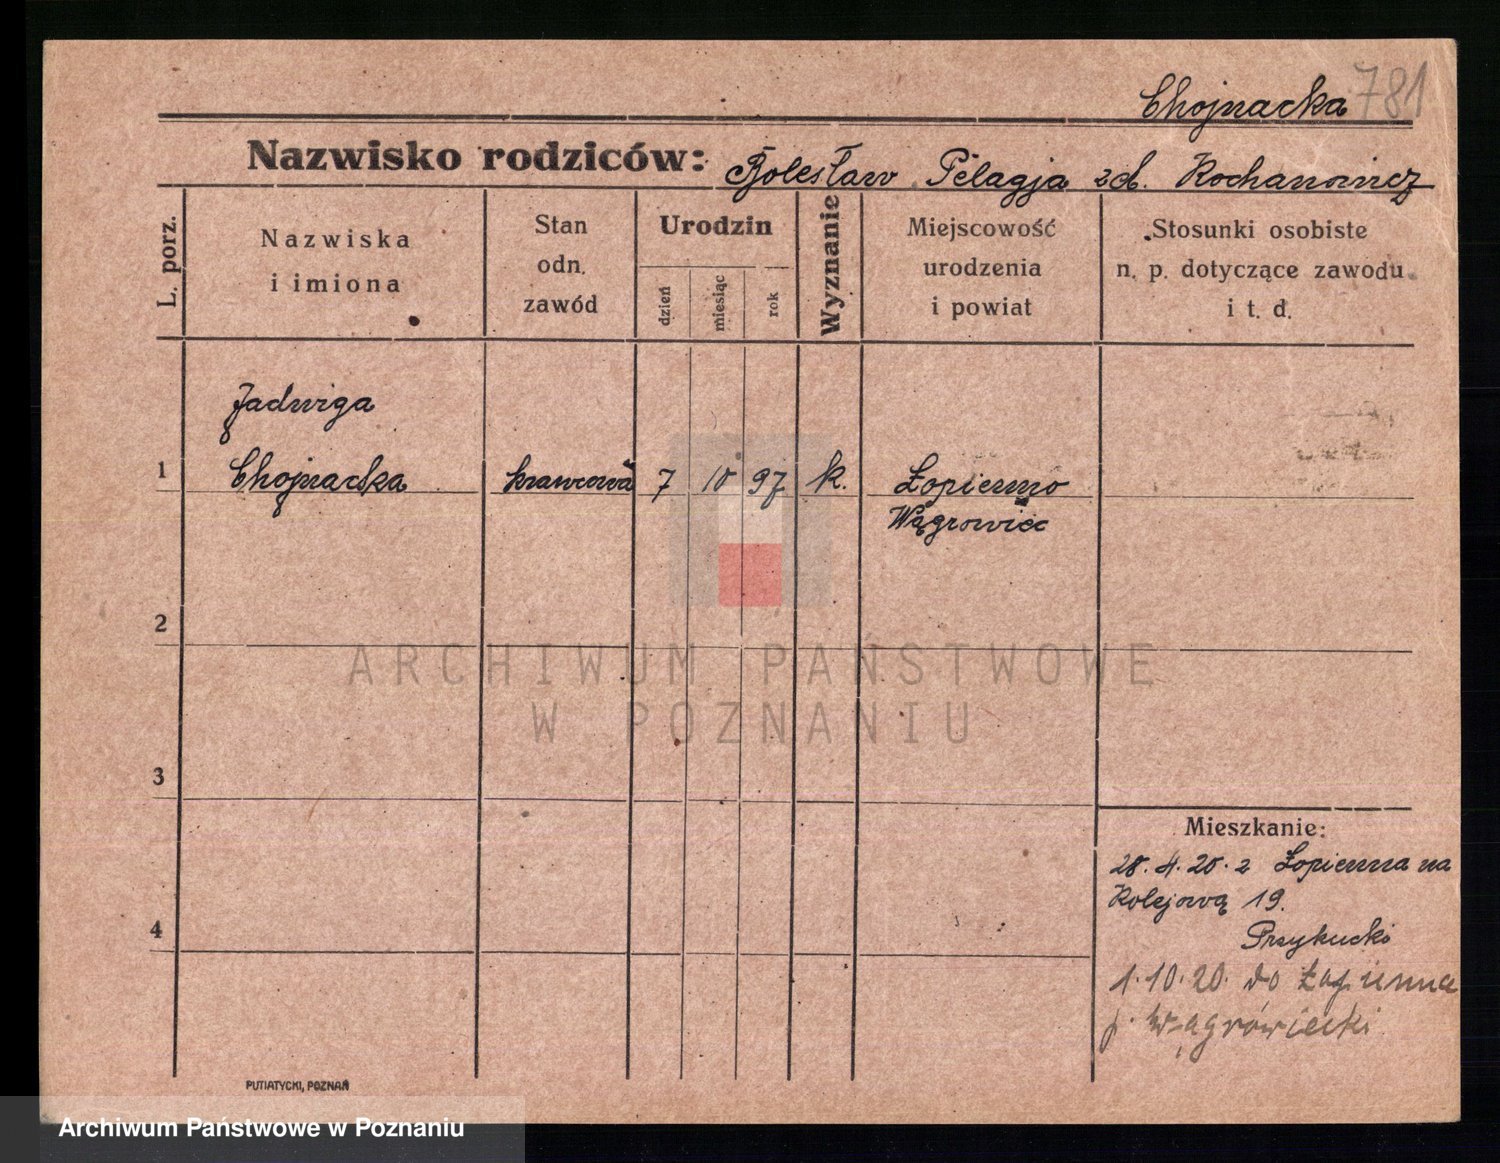 Chojnacka 781
Nazwisko rodziców: Bolesław Pelagja zd. Kochanowicz
L. porz.
Nazwiska
i imiona
Stan
odn.
zawód
Urodzin
dzień
miesiąc
rok
Wyznanie
Miejscowość
urodzenia
i powiat
Stosunki osobiste
n. p. dotyczące zawodu
i t. d.
Jadwiga
1 Chojnacka krawcowa 7 10 97 k. Łopienno
Wągrowiec
2
ARCHIWUM PAŃSTWOWE
W POZNANIU
3
Mieszkanie:
28.4.20. z Łopienna na
Kolejową 19.
Przykucki
4
1.10.20. do Łopienna
p. Wągrówiecki
PUTIATYCKI, POZNAŃ
Archiwum Państwowe w Poznaniu